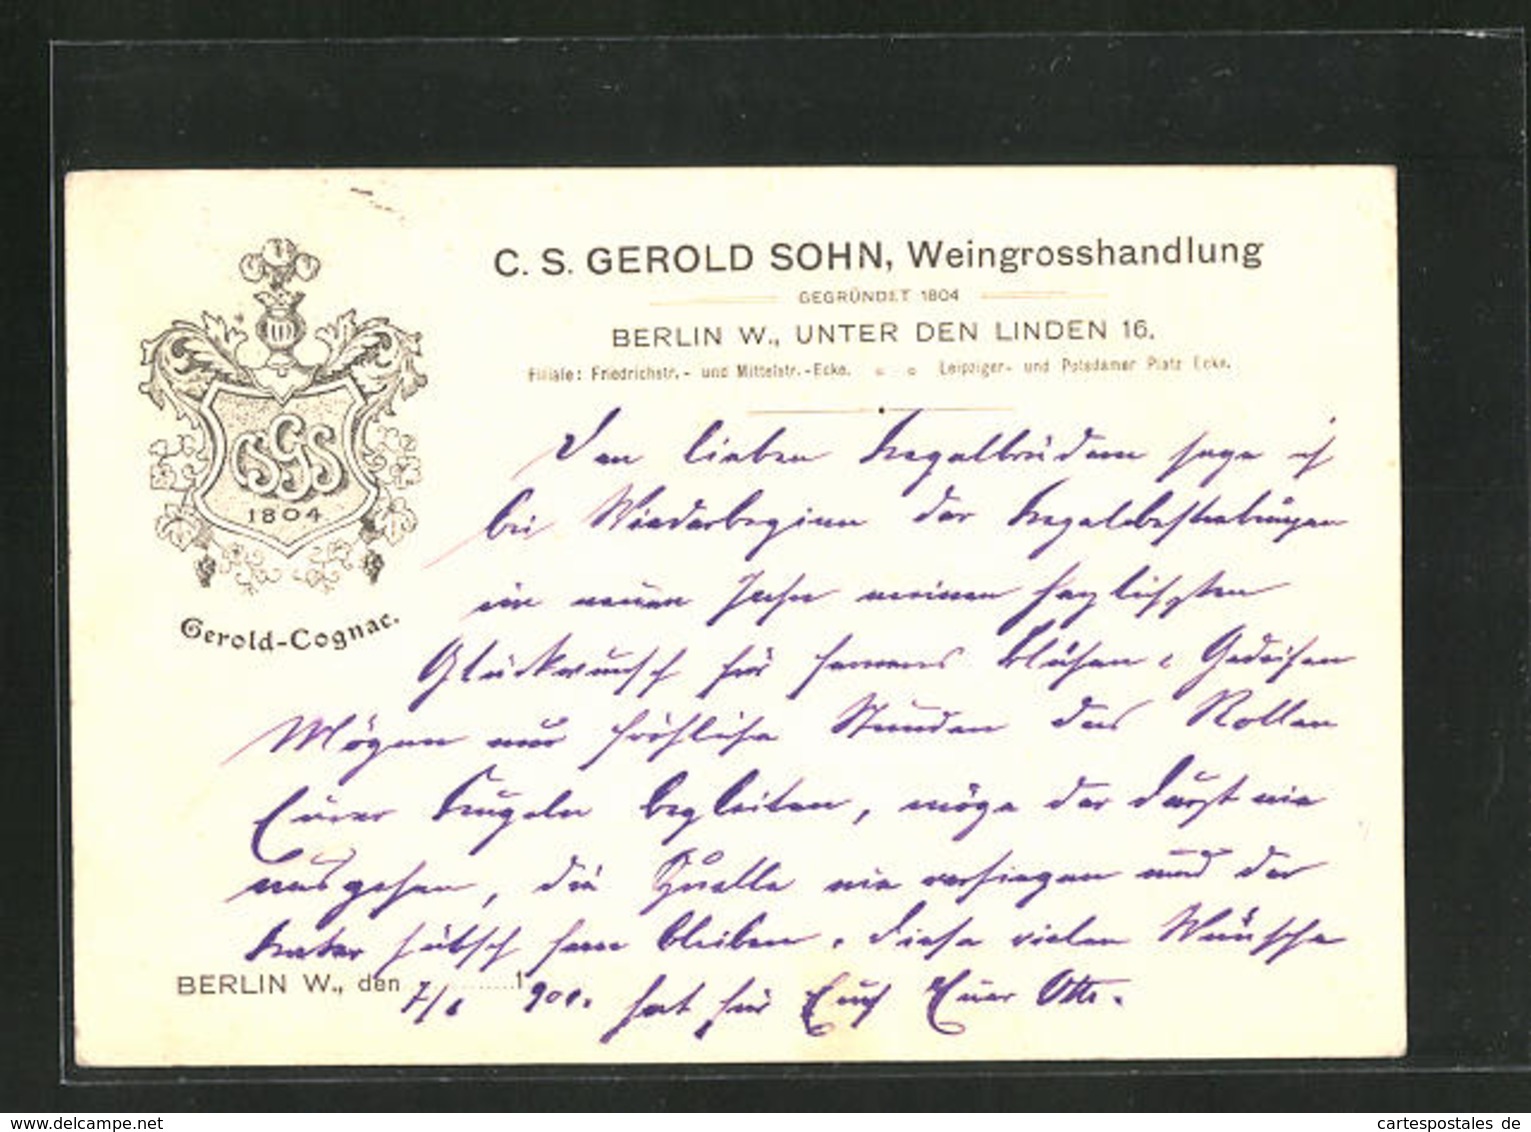 C. S. GEROLD SOHN, Weingrosshandlung
GEGRÜNDET 1804
BERLIN W., UNTER DEN LINDEN 16.
Filiale: Friedrichstr.- und Mittelstr.-Ecke. Leipziger- und Potsdamer Platz Ecke.
CSGS
1804
Gerold-Cognac.
Den lieben Kegelbrüdern sage ich
bei Wiederbeginn der Kegelbestrebungen
im neuen Jahr meinen herzlichsten
Glückwunsch für ferneres Blühen & Gedeihen
Mögen nur fröhliche Stunden das Rollen
Eurer Kugeln begleiten, möge der Durst nie
ausgehen, die Quelle nie versiegen und der
Kater hübsch fern bleiben. Diese vielen Wünsche
BERLIN W., den 7/1 1901. hat für Euch Euer Otto.
cartespostales.com
cartespostales de